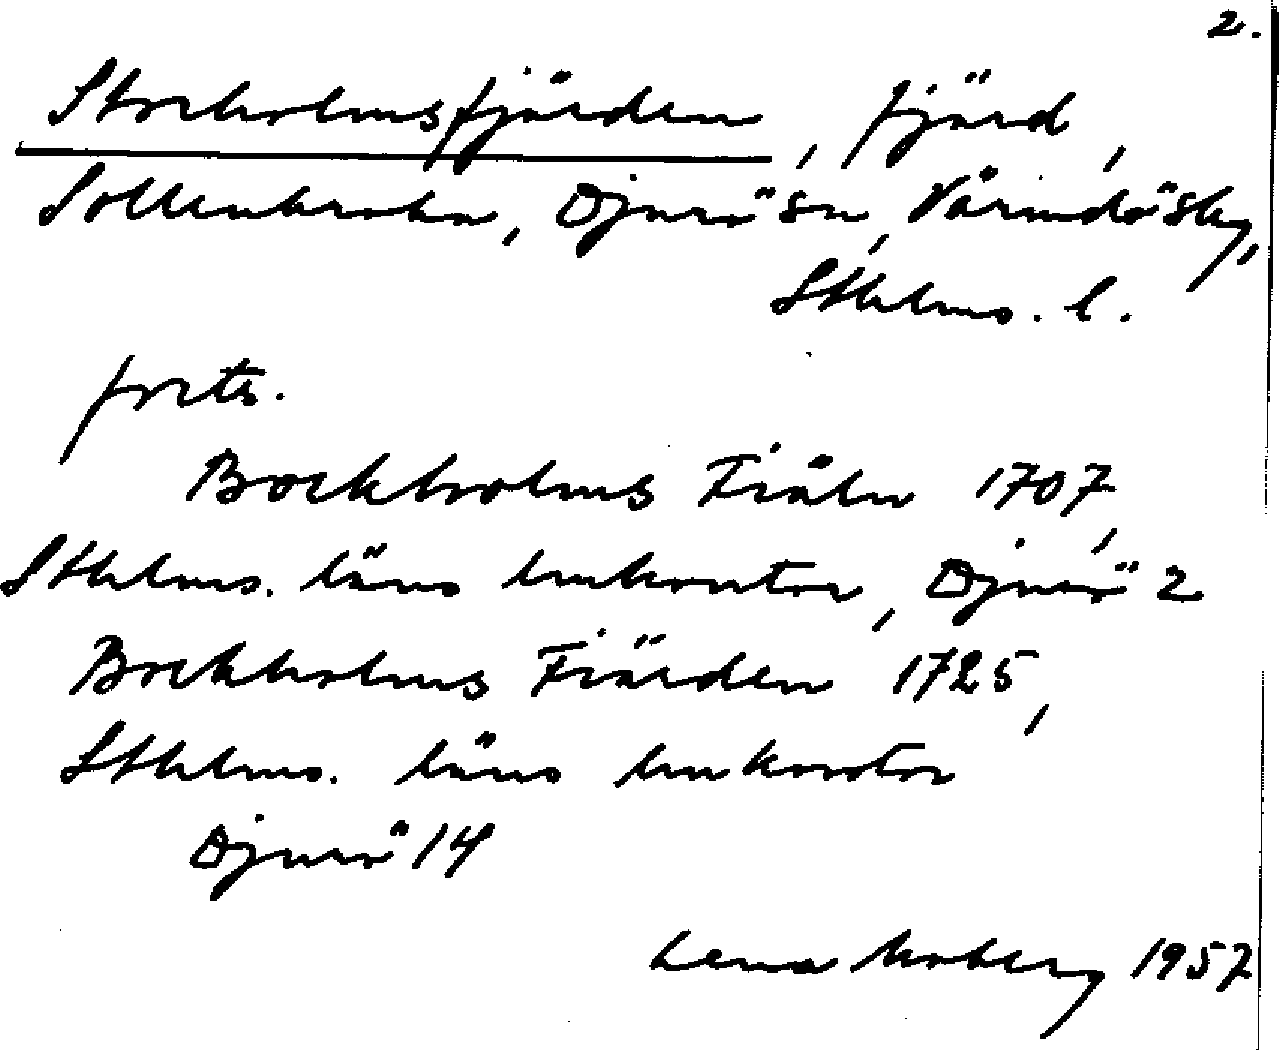 2.
Stockholmsfjärden, fjärd,
Sollenkroka, Djurö sn, Värmdö sky,
Sthlms. l.
forts.
Bockholms Fiäln 1707,
Sthlms. läns lmkontor, Djurö 2
Bockholms Fiärden 1725,
Sthlms. läns lmkontor
Djurö 14
Lena Moberg 1957